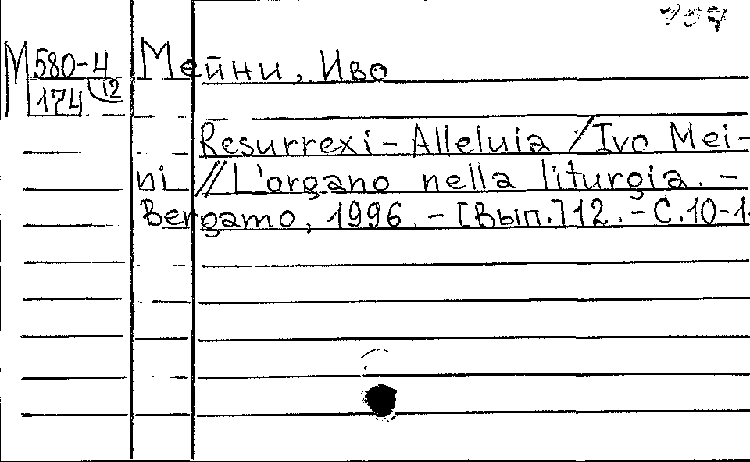 М 580-4 (12
174
Мейни, Иво
Resurrexi - Alleluia / Ivo Mei-
ni // L'organo nella liturgia. -
Bergamo, 1996. - [Вып.] 12. - С. 10-1